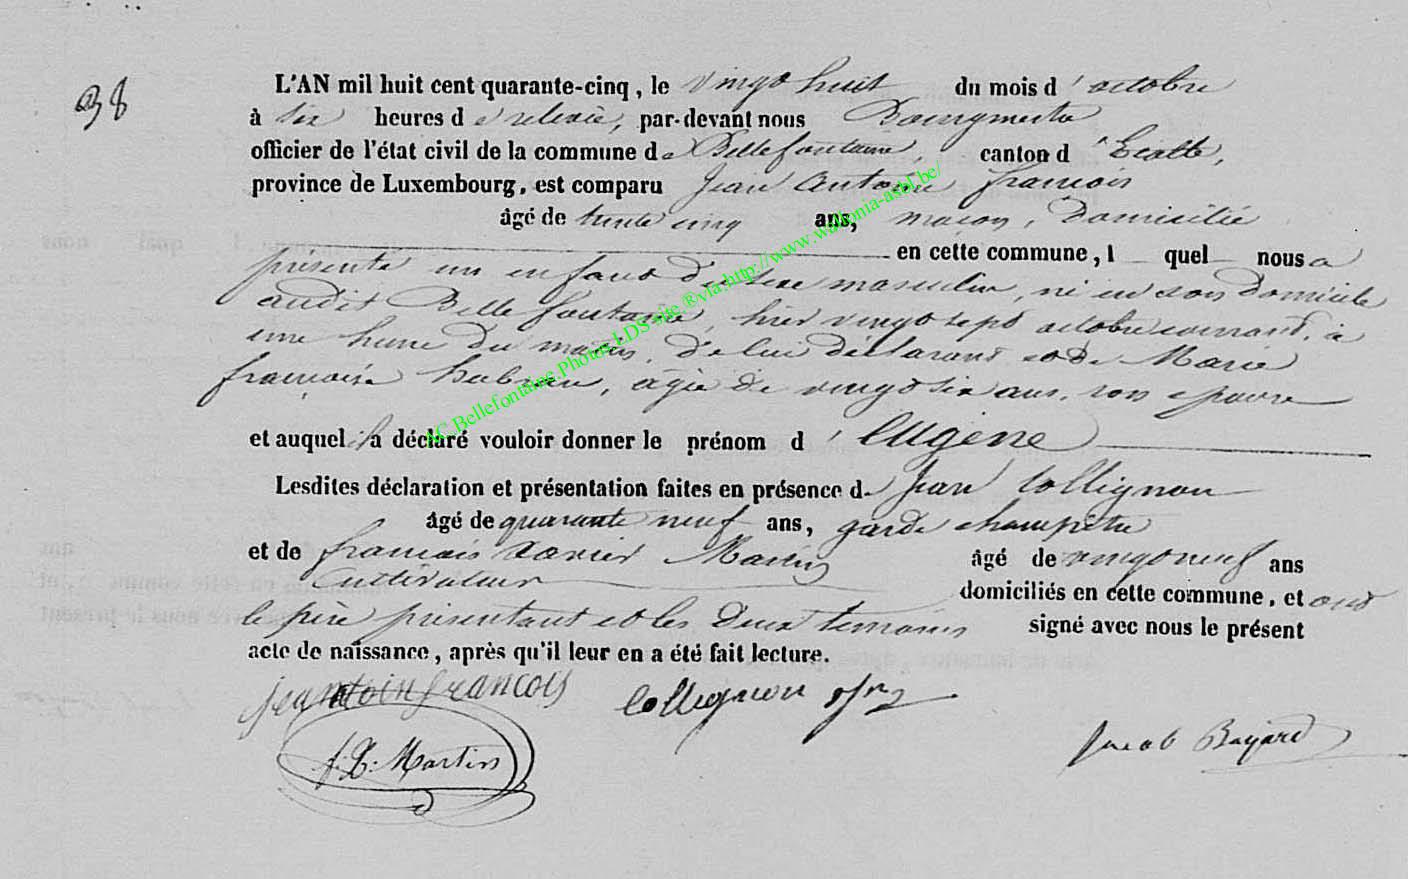 38
L'AN mil huit cent quarante-cinq, le vingt huit du mois d'octobre
à six heures de relevée, par-devant nous Bourgmestre
officier de l'état civil de la commune de Bellefontaine, canton d'Etalle,
province de Luxembourg, est comparu Jean Antoine francois
âgé de trente cinq ans, maçon, Domicilié
en cette commune, l quel nous a
présenté un enfant du sexe masculin, né en son Domicile
audit Bellefontaine, hier vingt sept octobre courant, à
une heure du matin, de lui déclarant et de Marie
françoise, âgée de vingt six ans, son épouse
et auquel il a déclaré vouloir donner le prénom d'Eugène
Lesdites déclaration et présentation faites en présence de Jean Collignon
âgé de quarante neuf ans, garde champêtre
et de francois Xavier Martin âgé de vingt neuf ans
Cultivateur domiciliés en cette commune, et ont
le père présentant et les deux témoins signé avec nous le présent
acte de naissance, après qu'il leur en a été fait lecture.
jeantoin francois Collignon
f. X. Martin Jacob Bayard
AC.Bellefontaine.Photos LDS site.®via:http://www.wallonia-asbl.be/